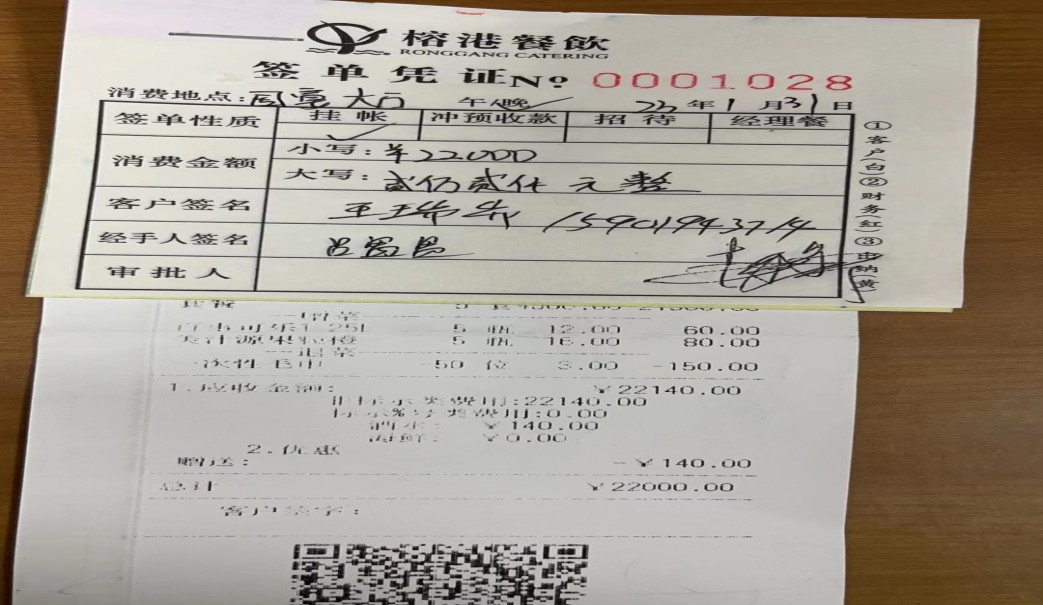 榕港餐飲
RONGGANG CATERING
签单凭证No 0001028
消费地点: 午 晚 年1月31日
签单性质 挂帐 冲预收款 招待 经理餐
消费金额 小写:¥22000
大写:贰仟 元整
客户签名 15901943714
经手人签名
审批人
①客户(白)②财务(红)③出纳(黄)
赠菜
百事可乐1.25l 5 瓶 12.00 60.00
美汁源果粒橙 5 瓶 16.00 80.00
退菜
一次性毛巾 -50 位 3.00 -150.00
1.应收金额: ¥22140.00
类费用:22140.00
类费用:0.00
酒水: ¥140.00
海鲜: ¥0.00
2.优惠
赠送: -¥140.00
总计 ¥22000.00
客户签字: